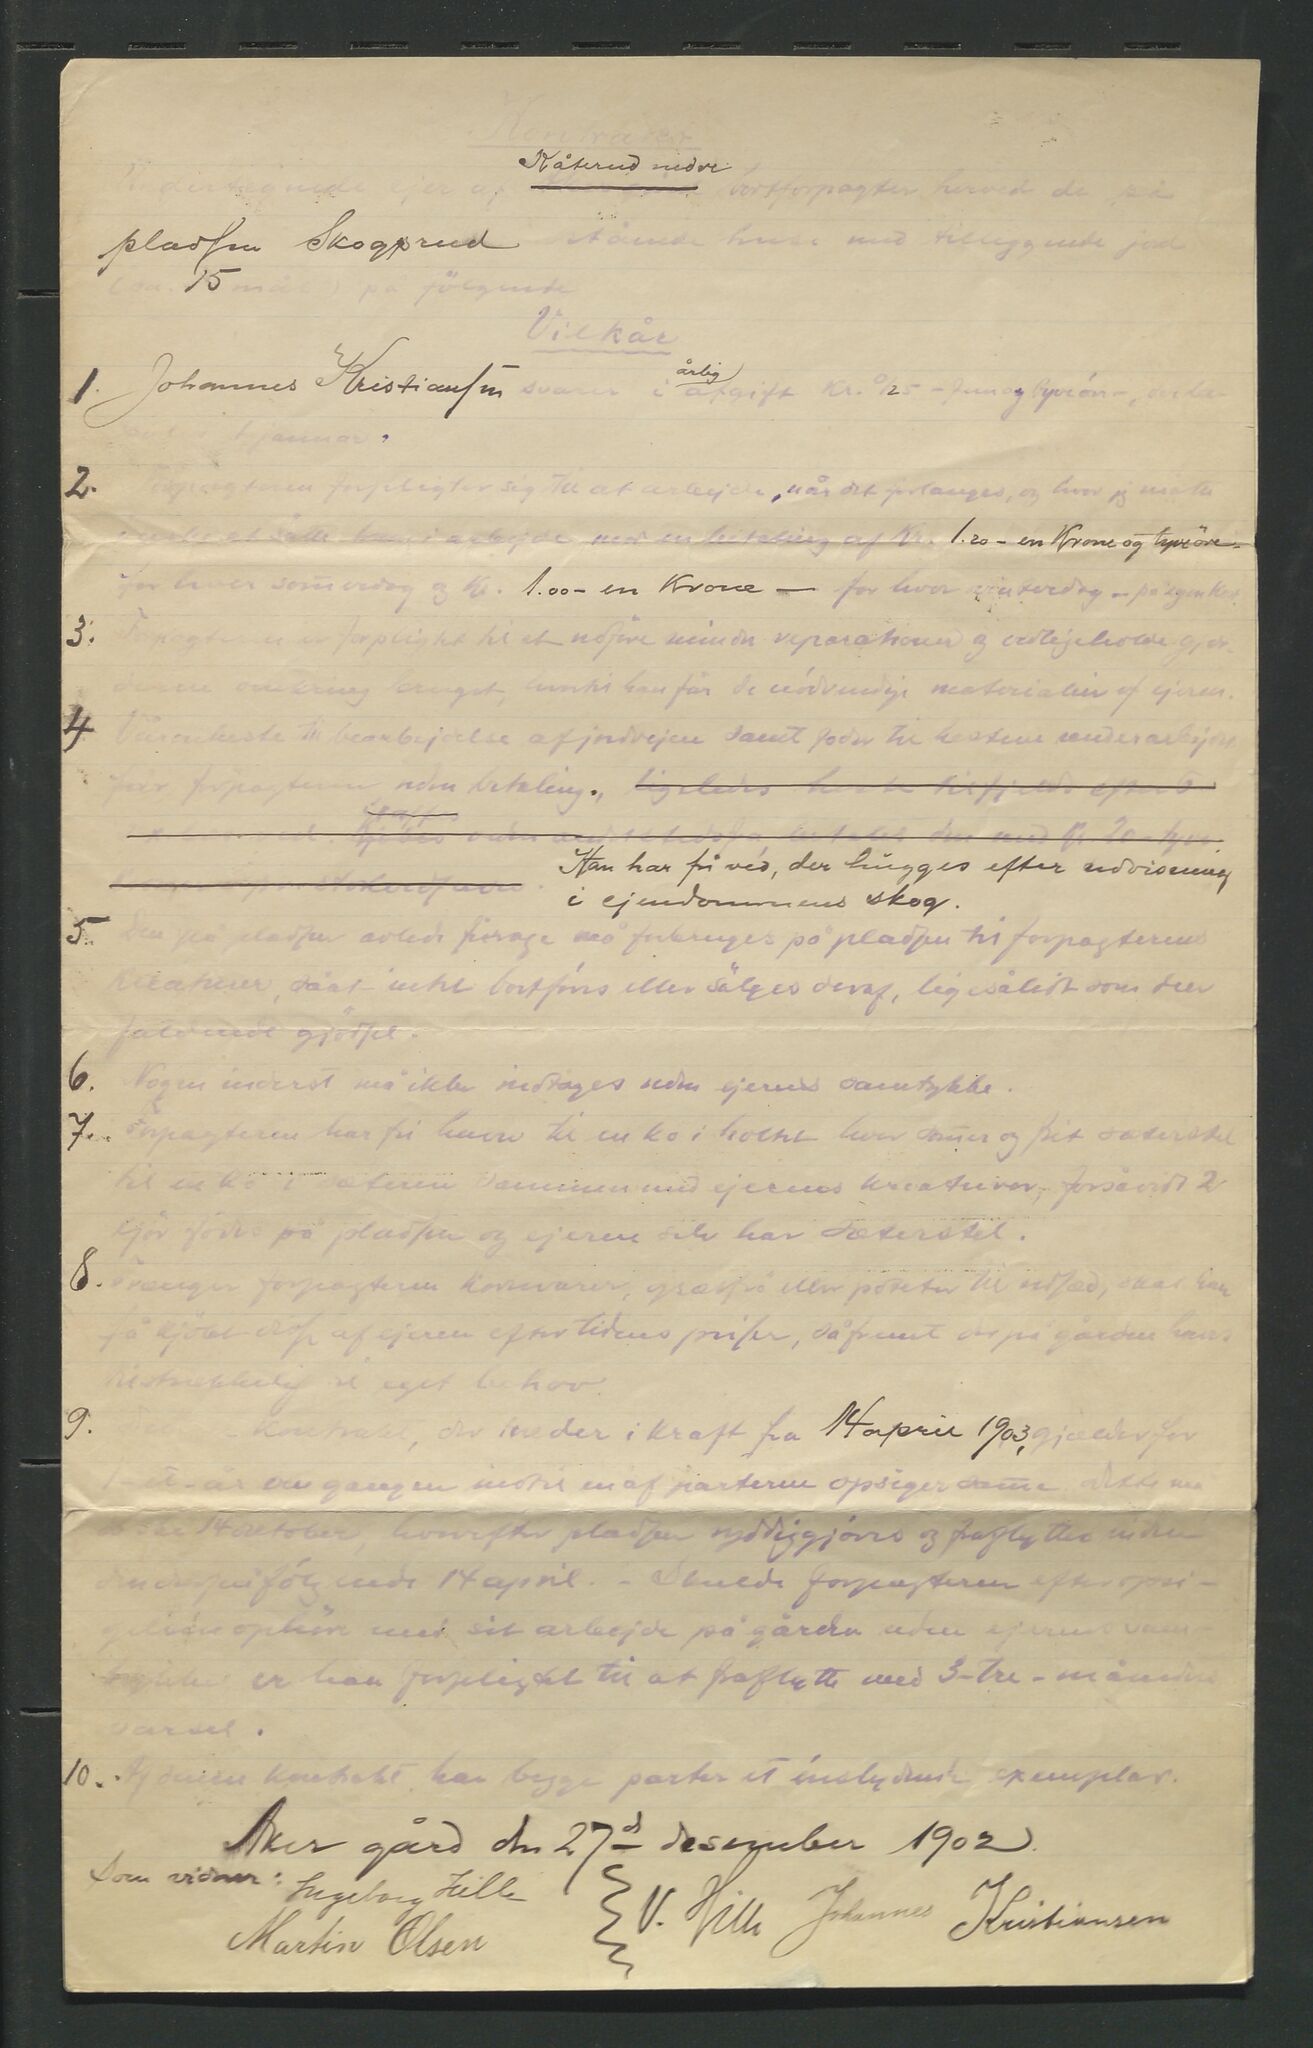 Kontrakt
Kåterud nedre
Undertegnede ejer af bortforpagter herved de på
pladsen Skogsrud stående huse med tilliggende jord
(ca. 15 mål) på følgende
Vilkår
1. Johannes Kristiansen svarer i årlig afgift Kr. 25 - fem og tyve
januar.
2. Forpagteren forpligter sig til at arbejde, når det forlanges, og hvor jeg måtte
ønske at sätte ham i arbejde med en betaling af Kr. 1.20 - en Krone og tyveöre -
for hver somerdag og Kr. 1.00 - en Krone - for hver vinterdag - på egen kost
3. Forpagteren er forpligtet til at udføre mindre reparationer og vedligeholde gjær-
derne omkring bruget, hvortil han får de nödvendige materialier af ejeren.
4 Vårenheste til bearbejdelse af jordvejen samt foder til hestene under arbejdet
får forpagteren uden betaling., ligeledes heste til
Han har fri ved, der hugges efter udvisning
i ejendommens skog.
5. Den på pladsen avlede forage må forbruges på pladsen til forpagterens
kreaturer, så at intet bortføres eller sälges deraf, ligesålidt som den
faldende gjödsel.
6. Nogen inderst må ikke indtages uden ejerens samtykke.
7. Forpagteren har fri havn til en ko i holtet hver somer og frit sæterstel
til en ko i sæteren sammen med ejerens kreaturer, forsåvidt 2
kjör födes på pladsen og ejeren selv har sæterstel.
8. Trænger forpagteren kornvarer, græsfrö eller poteter til udsæd, skal han
få kjöbt dette af ejeren efter tidens priser, såfremt der på gården haves
tilstrækkelig til eget behov.
9. kontrakt, der træder i kraft fra 14 april 1903, gjælder for
1 - et - år om gangen indtil en af parterne opsiger same. Dette må
ske 14 oktober, hvorefter pladsen ryddiggjøres og fraflyttes inden
den derpåfölgende 14 april. - Skulde forpagteren efter opsi-
gelsen ophöre med sit arbejde på gården uden ejerens sam-
tykke er han forpligtet til at fraflytte med 3 - tre - måneders
varsel.
10. Af denne kontrakt har begge parter et enslydende exemplar.
Aker gård den 27d desember 1902.
Som vidner: Ingeborg Hille
Martin Olsen
V. Hille Johannes Kristiansen